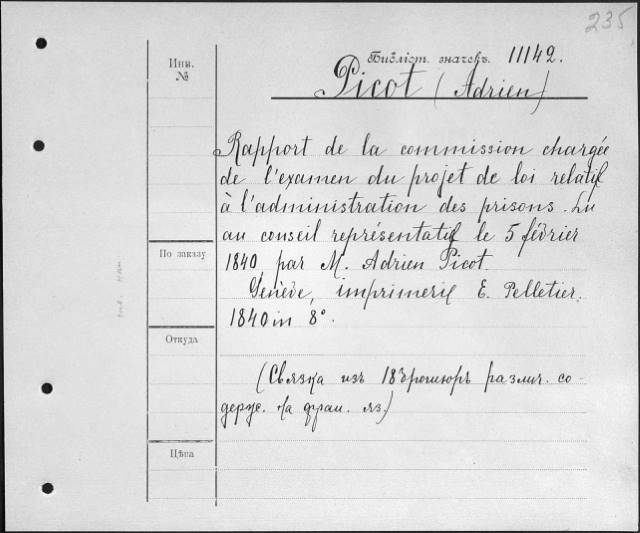 235
Инв. №
Библіот. значекъ. 11142.
Picot (Adrien)
Rapport de la commission chargée
de l'examen du projet de loi relatif
à l'administration des prisons. Lu
au conseil représentatif le 5 février
1840, par M. Adrien Picot.
Genève, imprimerie E. Pelletier.
1840 in 8°.
По заказу
Откуда
(Связка изъ 18 брошюръ различ. со-
держ. На фран. яз.)
Цѣна